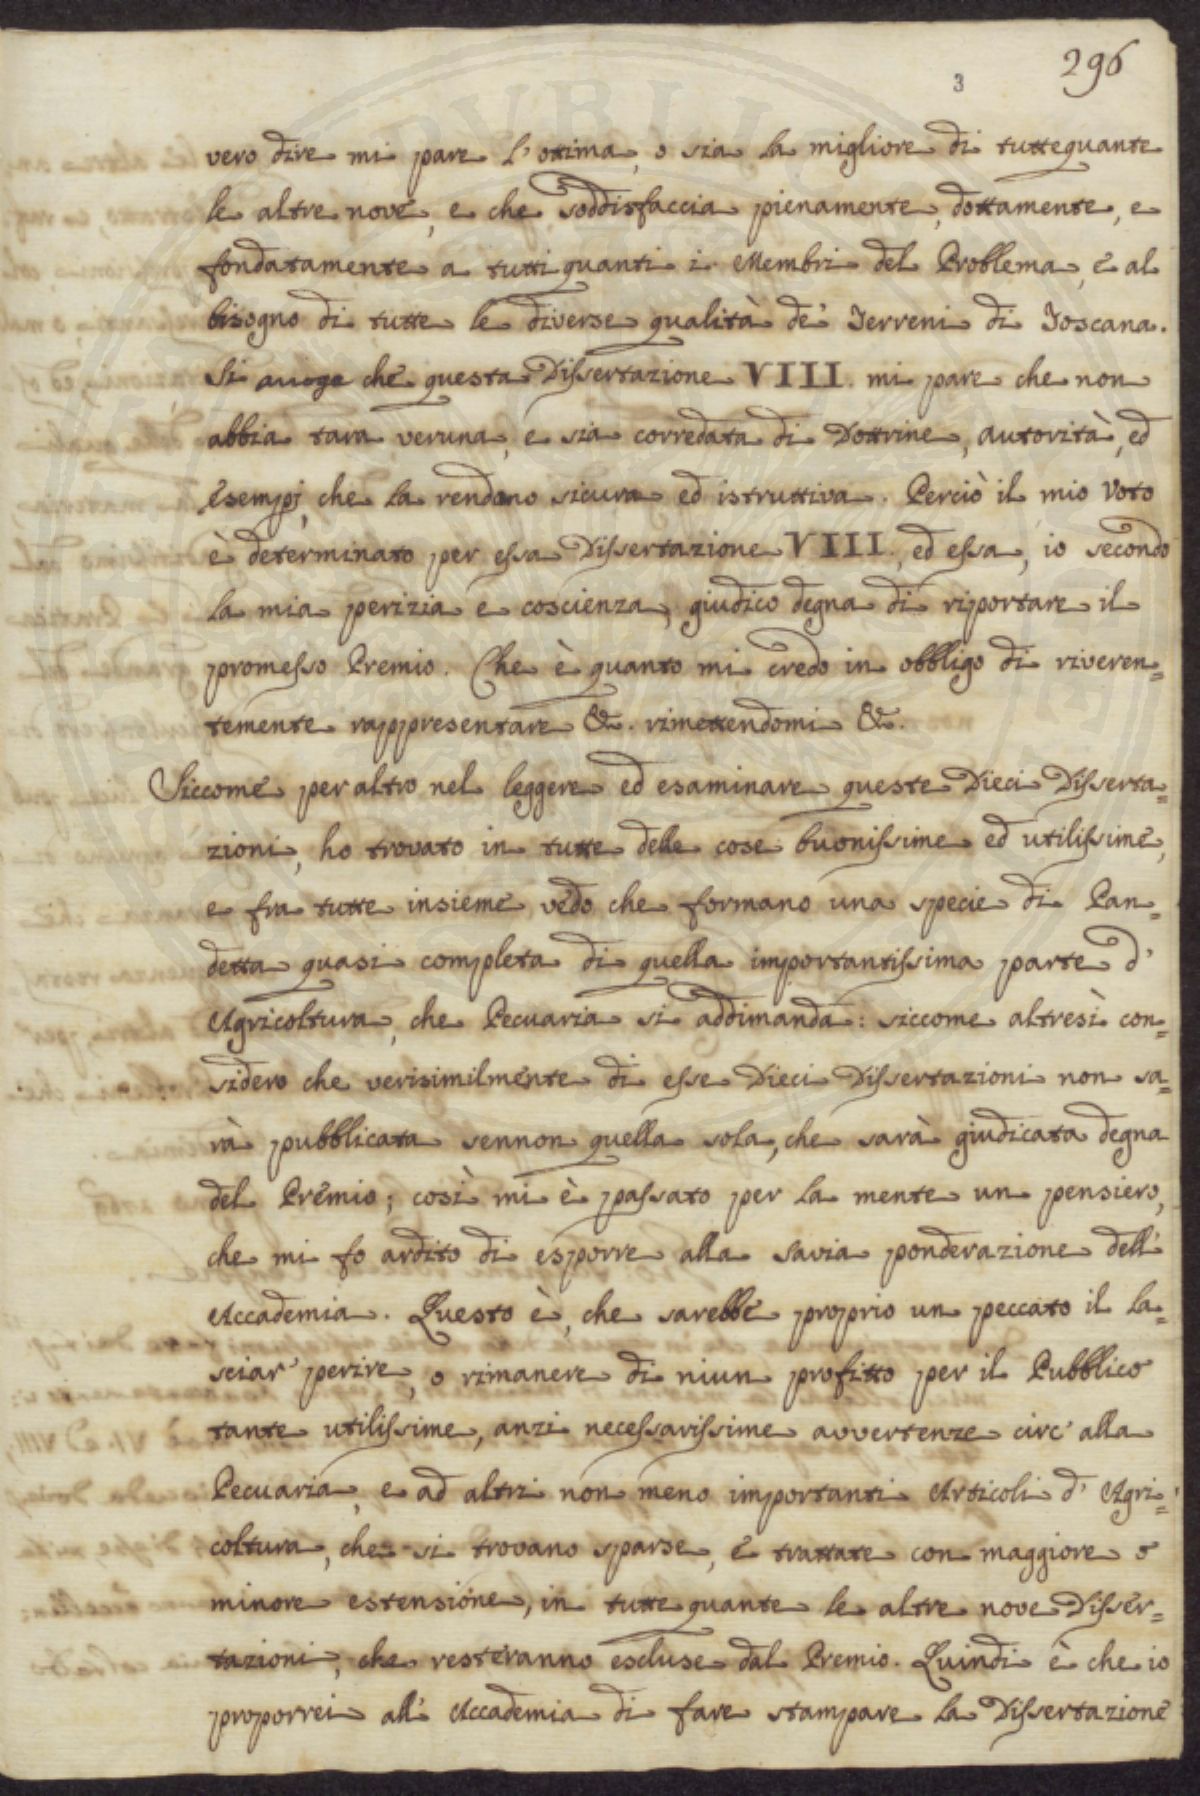 296
3
vero dire mi pare l'ottima, o sia la migliore di tuttequante
le altre nove, e che soddisfaccia pienamente, dottamente, e
fondatamente a tutti quanti i Membri del Problema, e al
bisogno di tutte le diverse qualità de' Terreni di Toscana.
Si avoge che questa Dissertazione VIII. mi pare che non
abbia tara veruna, e sia corredata di Dottrine, autorità, ed
Esempj, che la rendano sicura ed istruttiva. Perciò il mio Voto
è determinato per essa Dissertazione VIII., ed essa, io secondo
la mia perizia e coscienza, giudico degna di riportare il
promesso Premio. Che è quanto mi credo in obbligo di riveren=
temente rappresentare &. rimettendomi &.
Siccome per altro nel leggere ed esaminare queste Dieci Disserta=
zioni, ho trovato in tutte delle cose buonissime ed utilissime,
e fra tutte insieme vedo che formano una specie di Pan=
detta quasi completa di quella importantissima parte d'
Agricoltura, che Pecuaria si addimanda: siccome altresì con=
sidero che verisimilmente di esse Dieci Dissertazioni non sa=
rà pubblicata sennon quella sola, che sarà giudicata degna
del Premio; così mi è passato per la mente un pensiero,
che mi fo ardito di esporre alla savia ponderazione dell'
Accademia. Questo è, che sarebbe proprio un peccato il la=
sciar' perire, o rimanere di niun profitto per il Pubblico
tante utilissime, anzi necessarissime avvertenze circ' alla
Pecuaria, e ad altri non meno importanti Articoli d' Agri=
coltura, che si trovano sparse, e trattate con maggiore o
minore estensione, in tutte quante le altre nove Disser=
tazioni, che resteranno escluse dal Premio. Quindi è che io
proporrei all' Accademia di fare stampare la Dissertazione